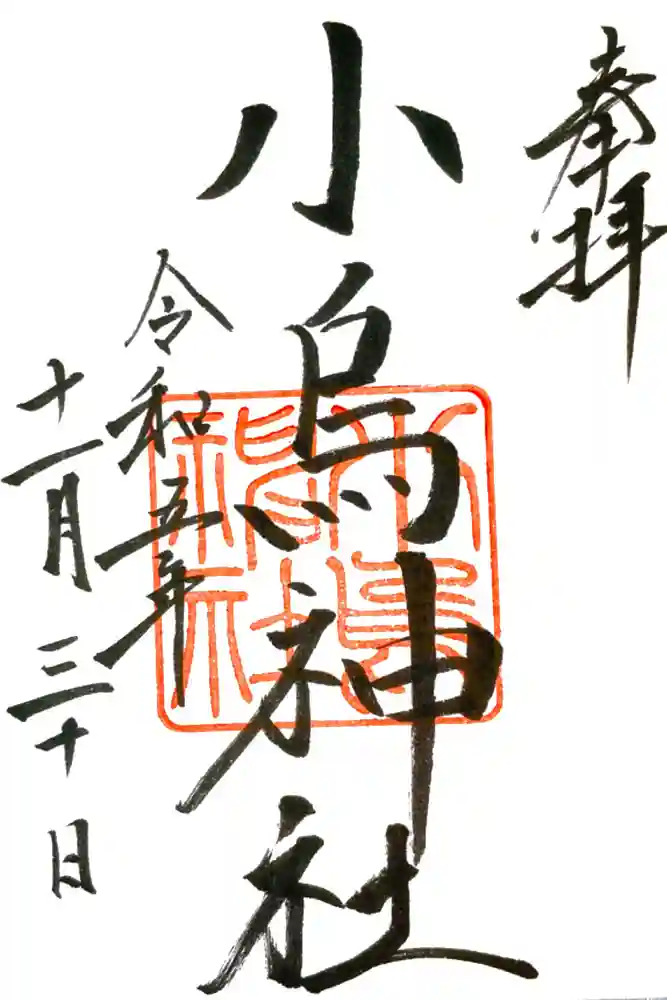 奉拝
小烏神社
令和五年
十一月三十日
小烏
神社